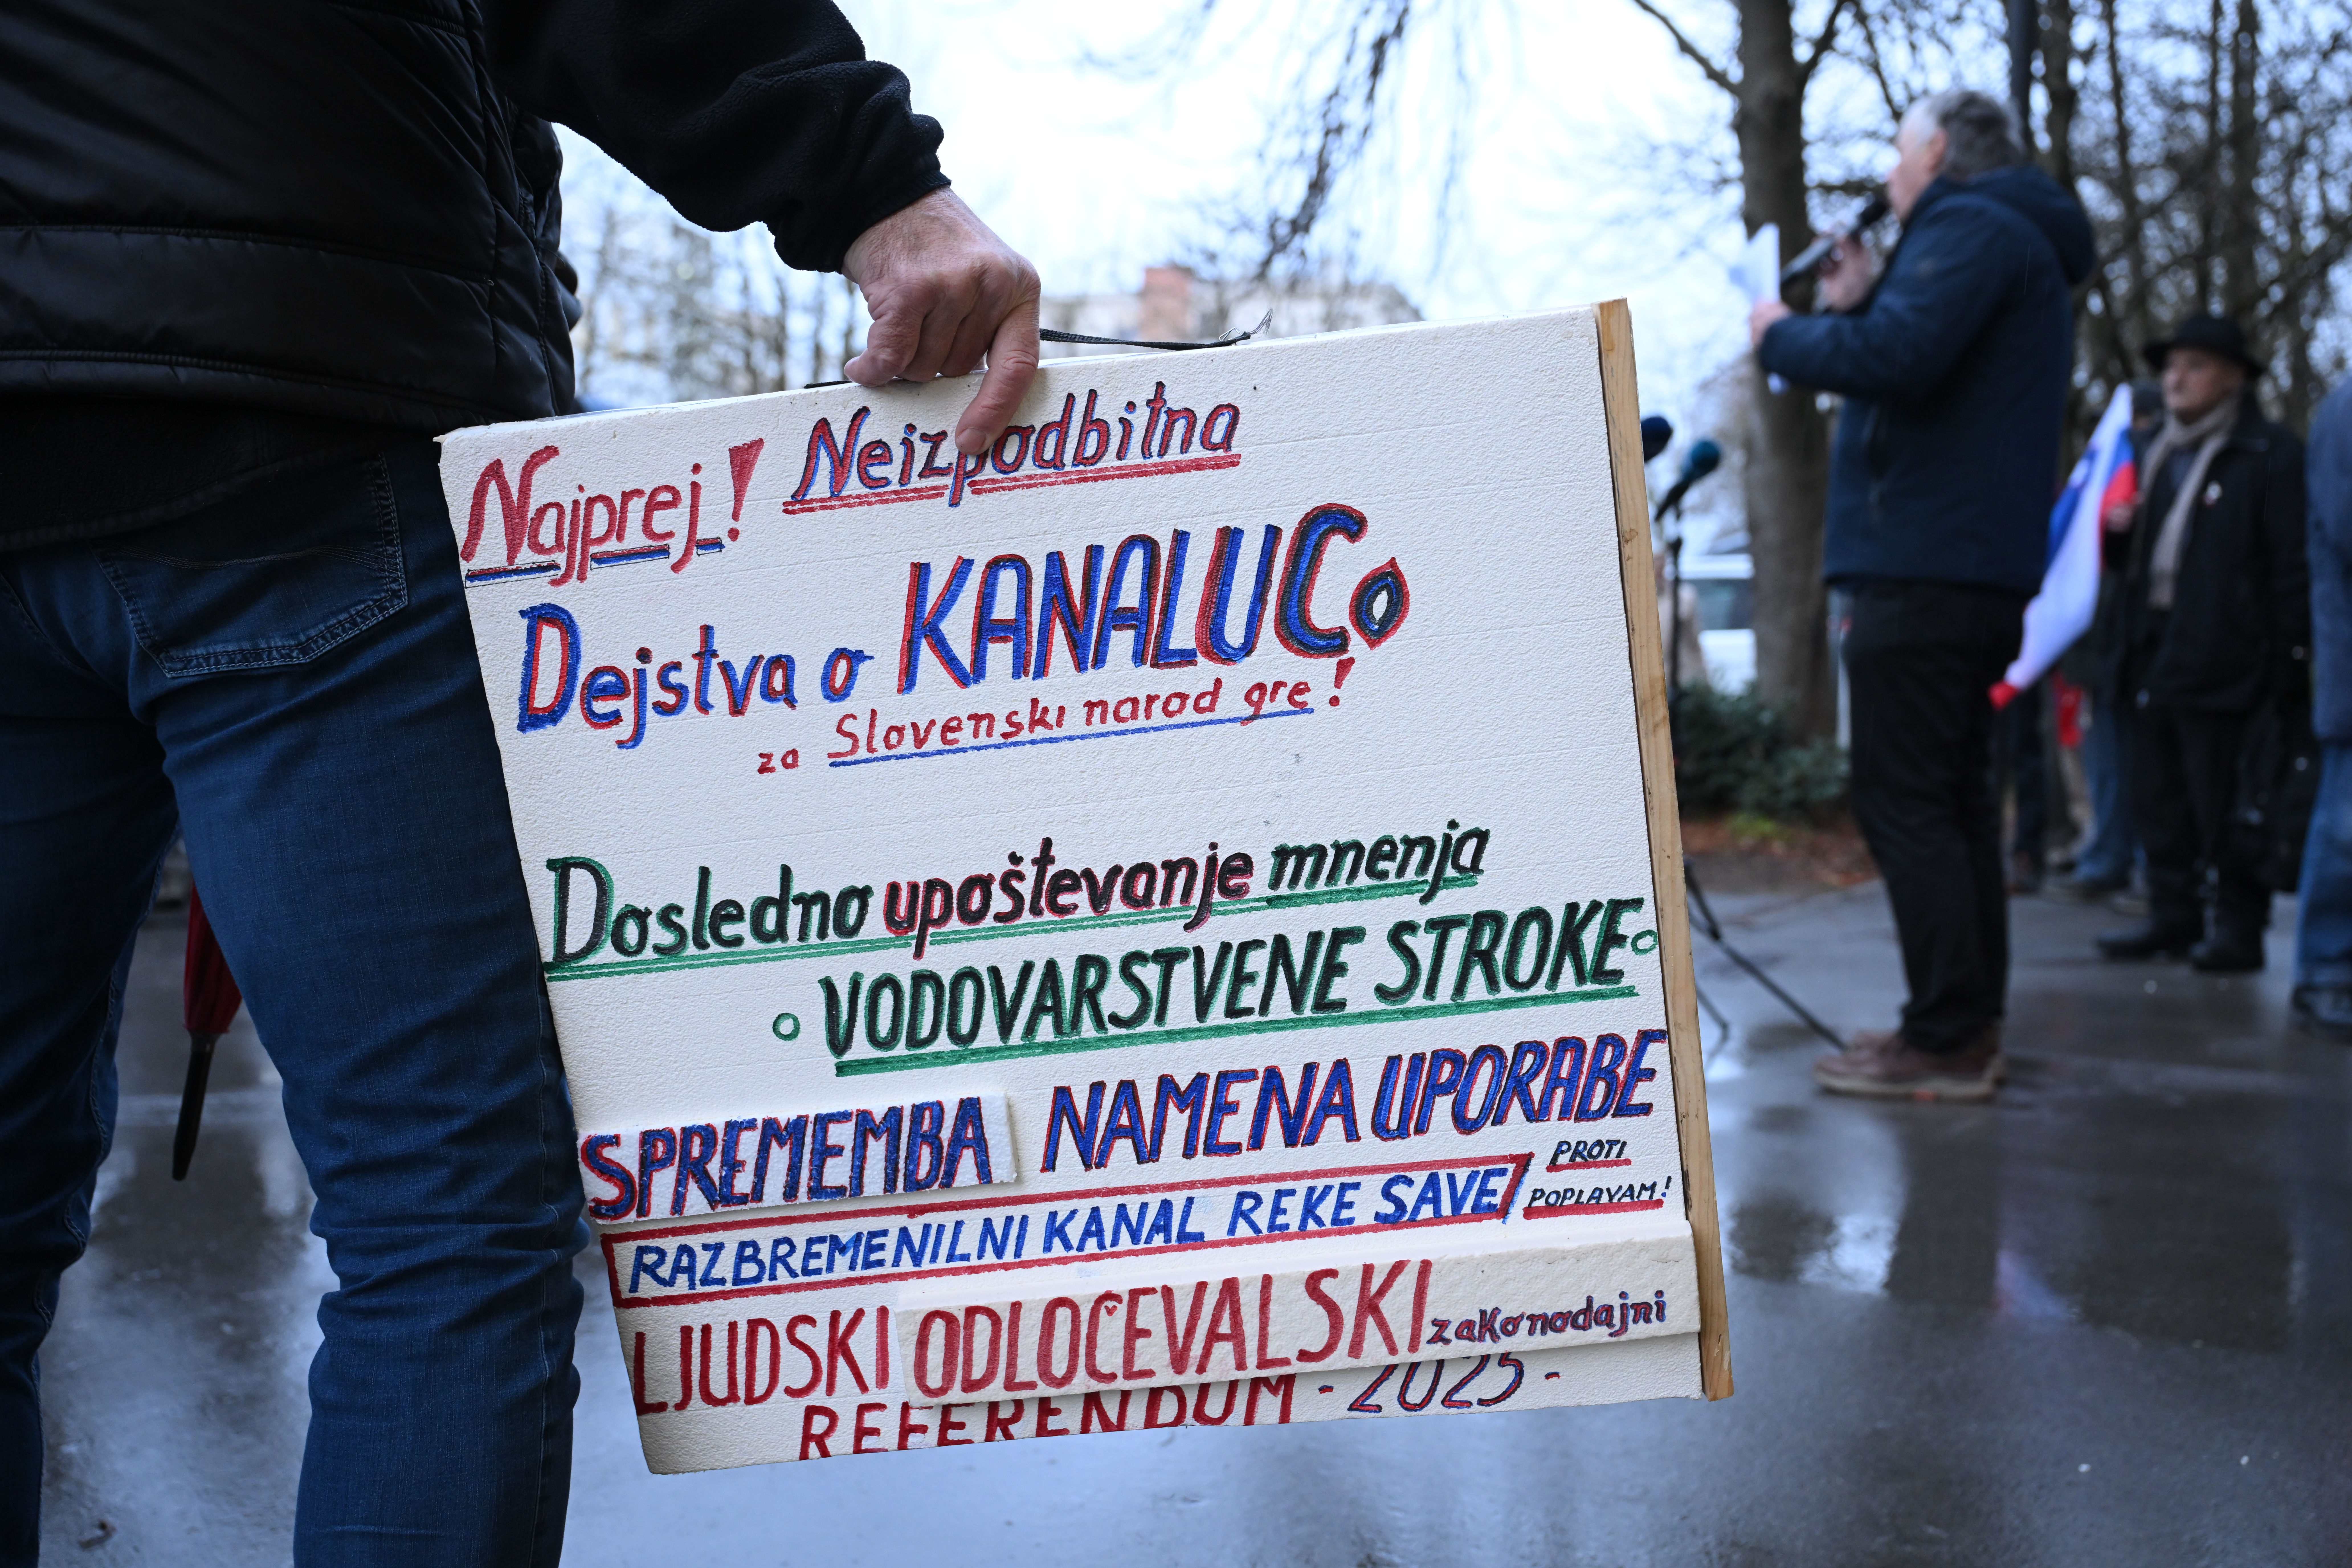 Najprej! Neizpodbitna
Dejstva o KANALU Co
za Slovenski narod gre!
Dosledno upoštevanje mnenja
o VODOVARSTVENE STROKE o
SPREMEMBA NAMENA UPORABE
RAZBREMENILNI KANAL REKE SAVE/ PROTI
POPLAVAM!
LJUDSKI ODLOČEVALSKI zakonodajni
REFERENDUM - 2025 -